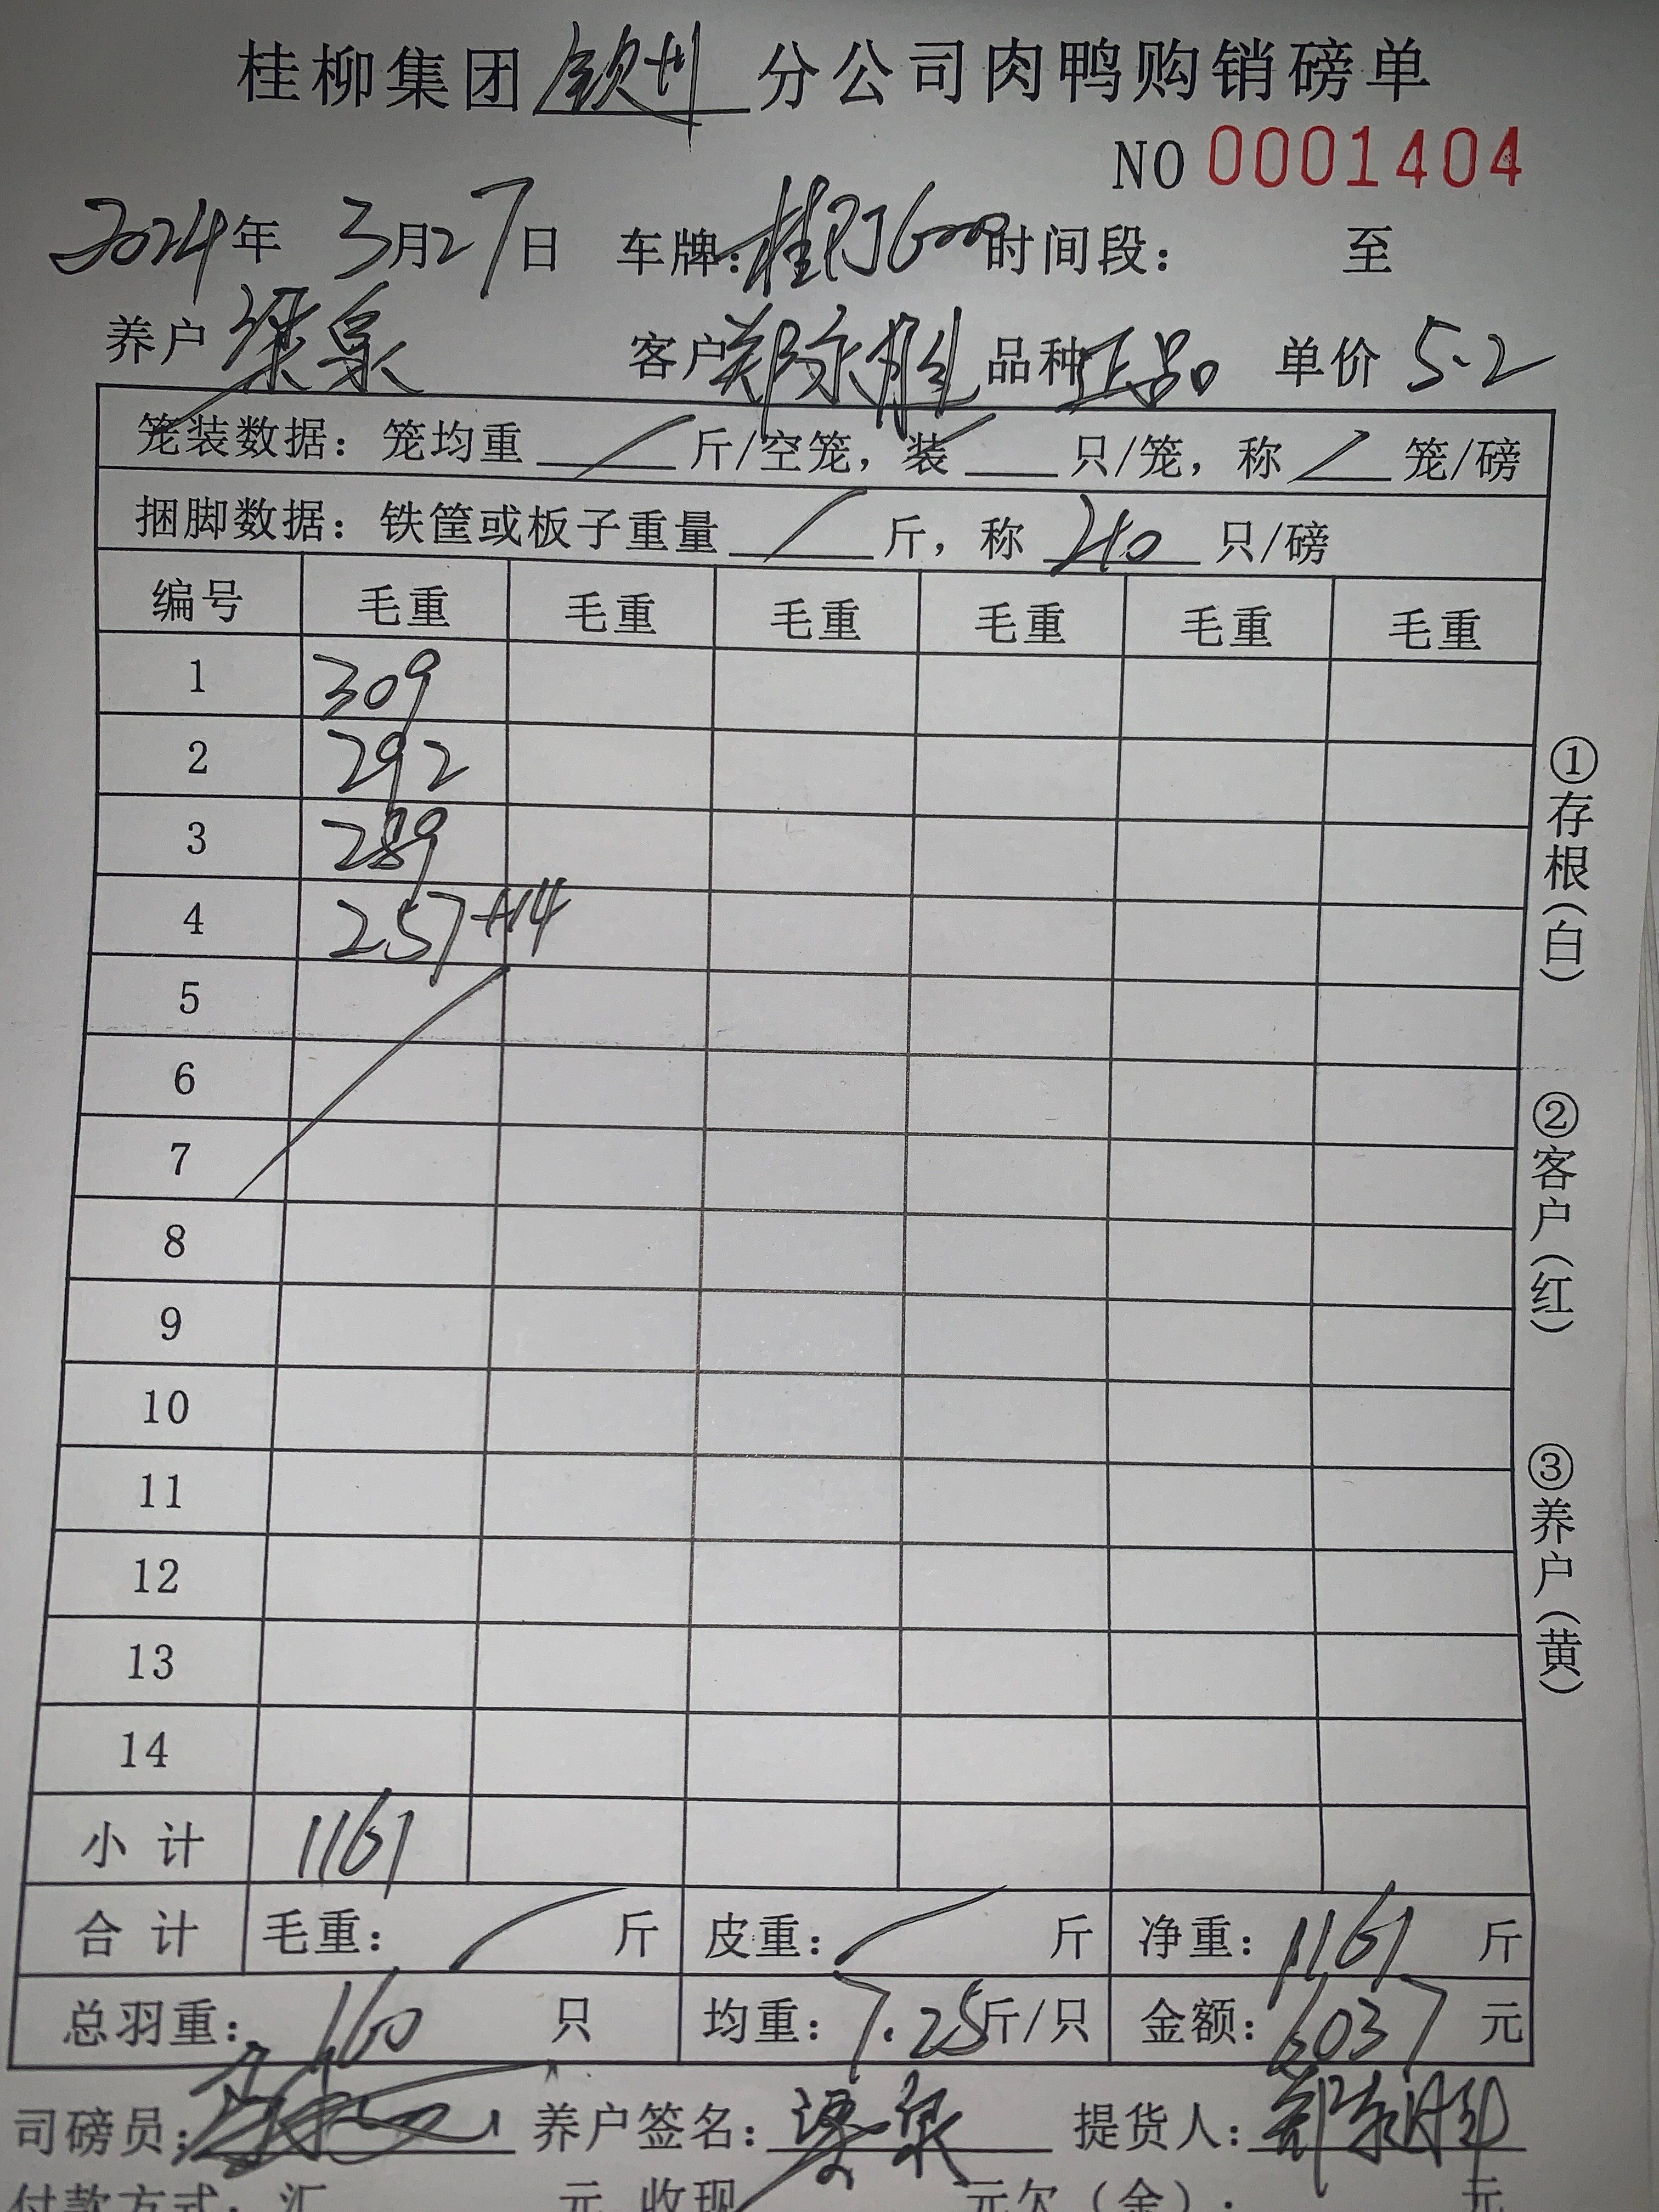 桂柳集团钦州分公司肉鸭购销磅单
NO 0001404
2024年 3月27日 车牌: 时间段: 至
养户 梁泉 客户 品种 正品 单价 5.2
笼装数据: 笼均重 斤/空笼, 装 只/笼, 称 笼/磅
捆脚数据: 铁筐或板子重量 斤, 称 40 只/磅
编号 毛重 毛重 毛重 毛重 毛重 毛重
1 309
2 292
3 289
4 257+14
5
6
7
8
9
10
11
12
13
14
小计 1161
合计 毛重: 斤 皮重: 斤 净重: 1161 斤
总羽重: 160 只 均重: 7.25斤/只 金额: 6037 元
司磅员: 养户签名: 梁泉 提货人:
付款方式: 汇 元 收现 元欠(金): 元
①存根(白)
②客户(红)
③养户(黄)